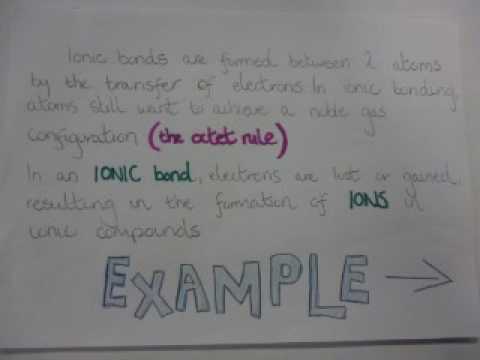 Ionic bonds are formed between 2 atoms
by the transfer of electrons. In ionic bonding
atoms still want to achieve a noble gas
configuration (the octet rule)
In an IONIC bond, electrons are lost or gained,
resulting in the formation of IONS in
ionic compounds
EXAMPLE →